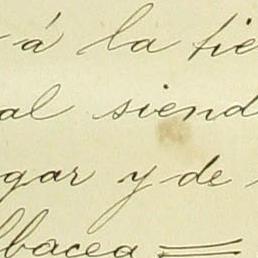 á la tie
al siend
gar y de
lbacea =